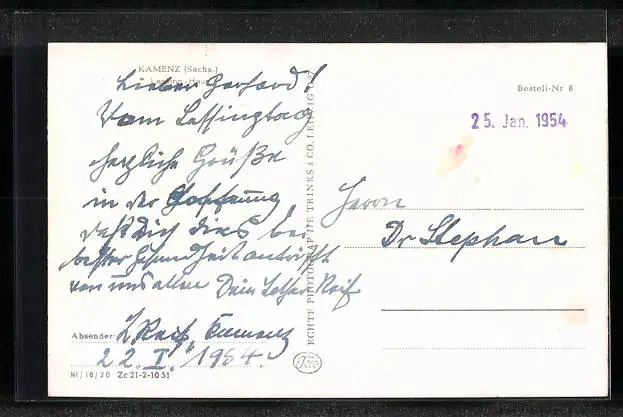 KAMENZ (Sachs.)
Lessing-Haus
Lieber Gerhard!
Vom Lessingtag
herzliche Grüße
in der Hoffnung
daß Dich dies bei
bester Gesundheit antrifft
von uns allen Dein Lothar Reif
Absender: L. Reif, Kamenz
22. I. 1954.
NI/18/20 Zc 21-2-10 51
ECHTE PHOTOGRAPHIE TRINKS & CO. LEIPZIG
Bestell-Nr 8
25. Jan. 1954
Herrn
Dr Stephan